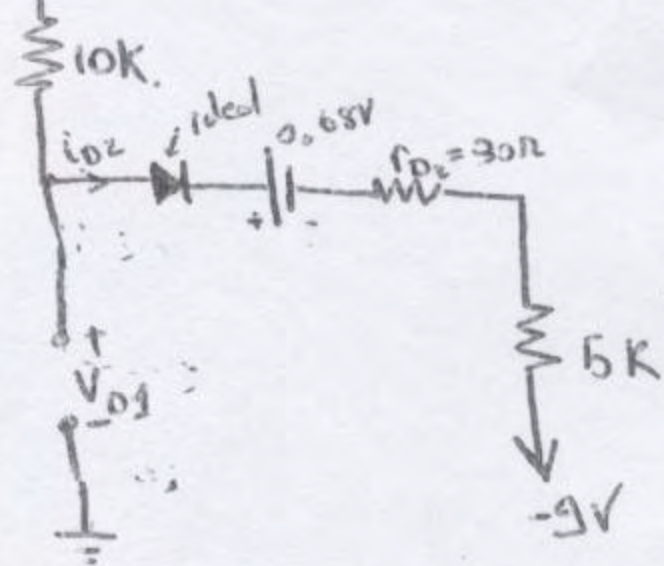 10K.
iD2
ideal
0.68V
rD2=30Ω
+
-
+
VD1
-
5K
-9V